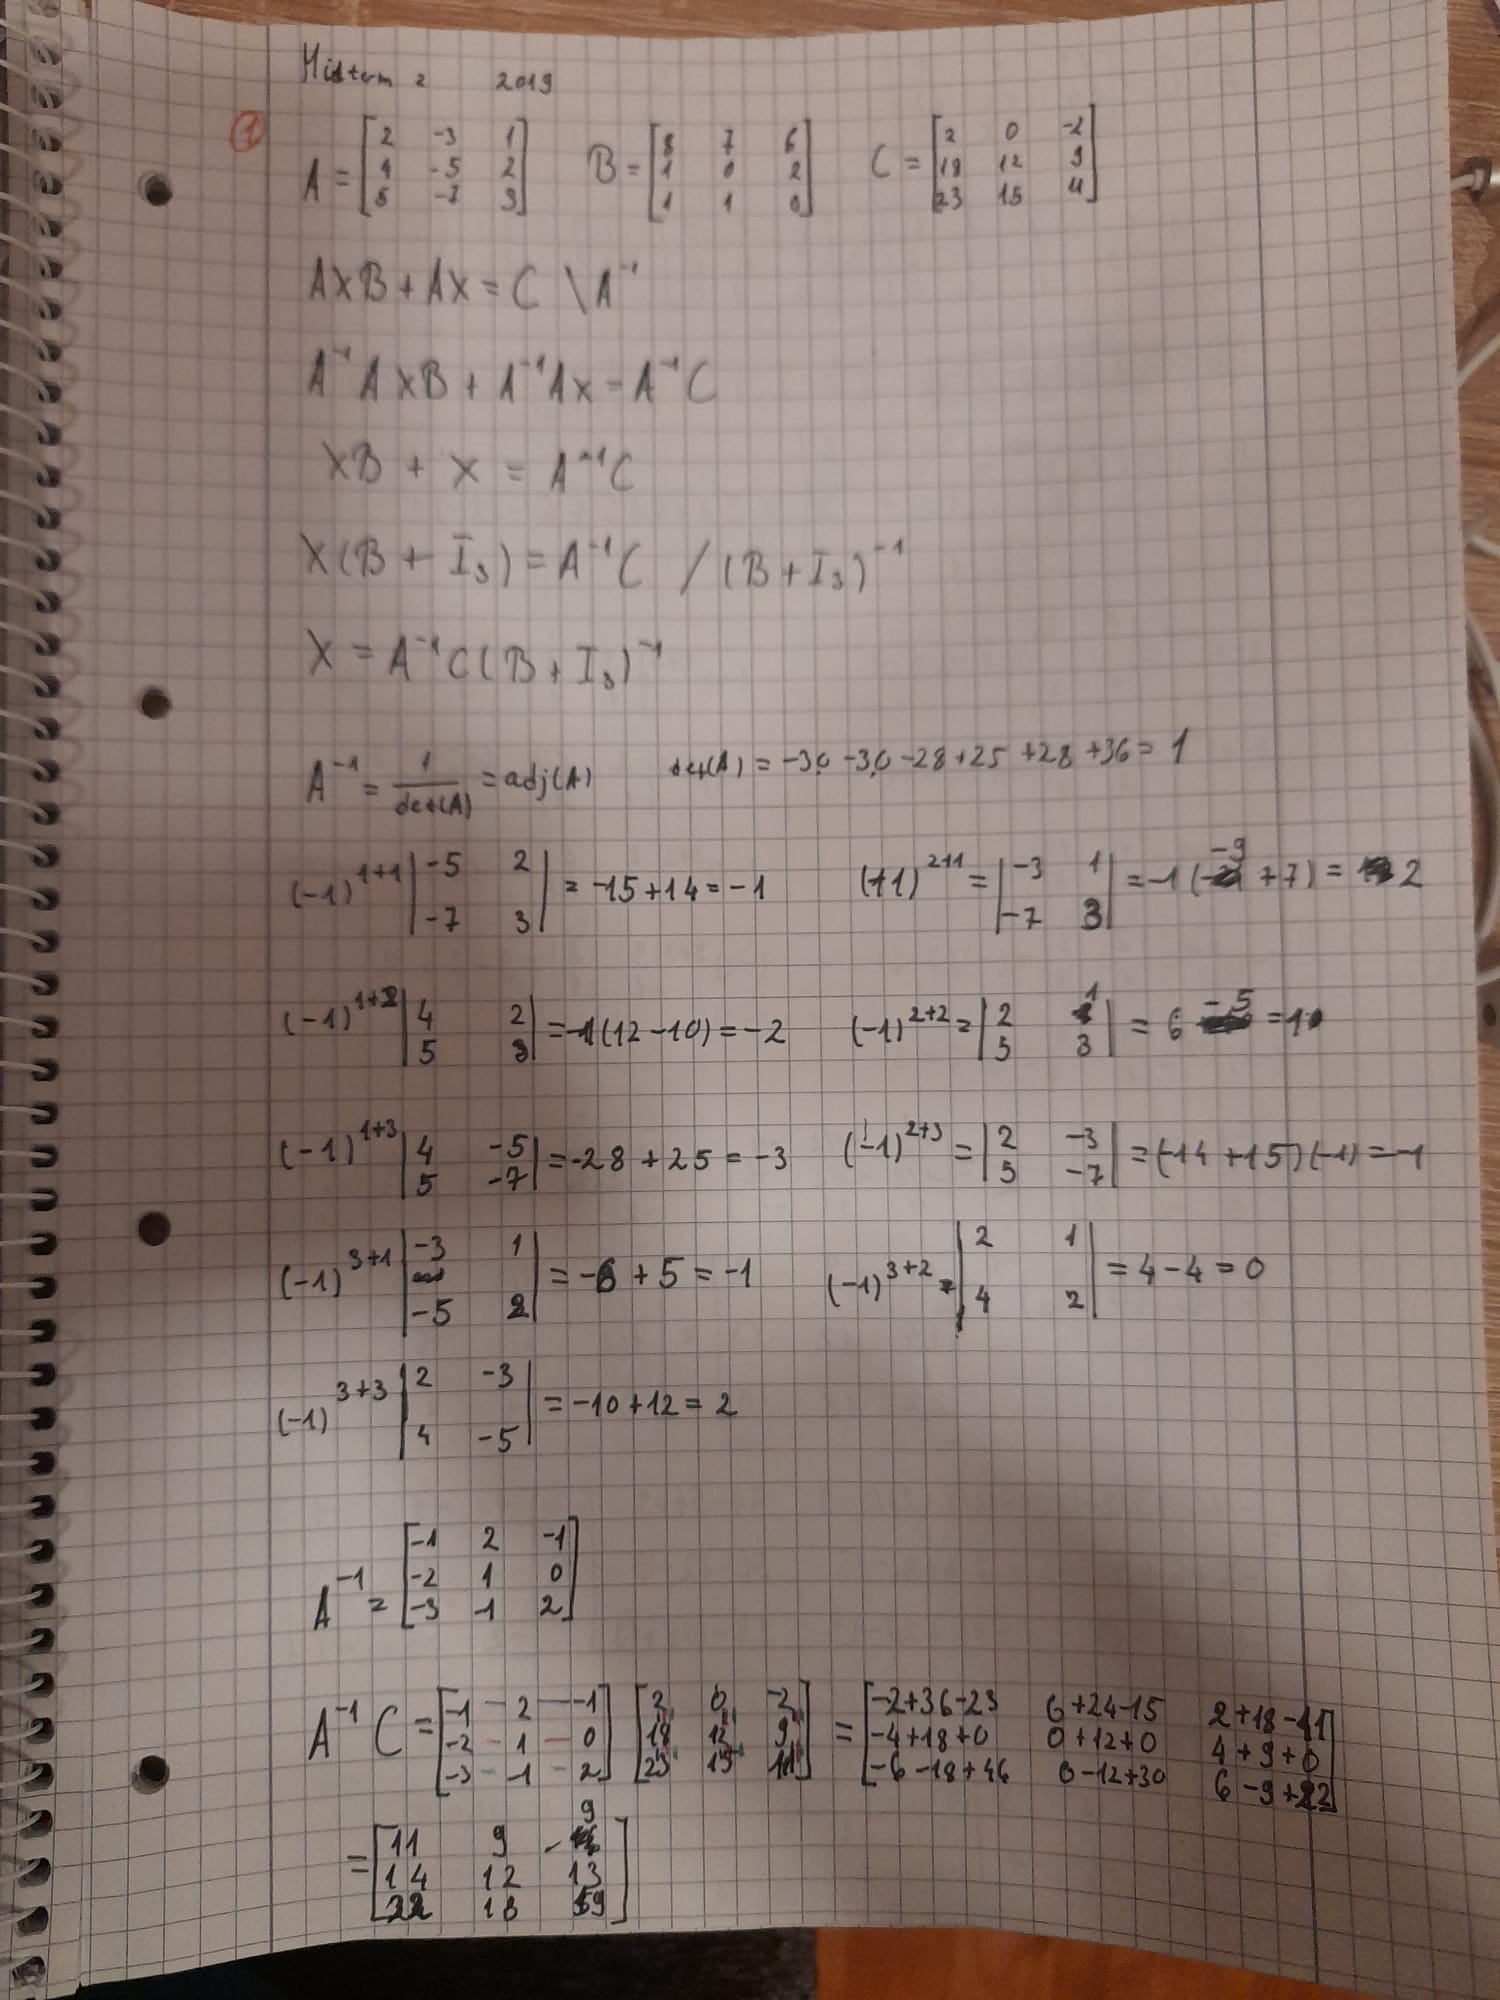 Midterm 2 2019
1 A = [2 -3 1; 4 -5 2; 5 -7 3] B = [8 7 6; 1 0 2; 1 1 0] C = [2 0 -2; 18 12 9; 23 15 11]
AXB + AX = C \A⁻¹
A⁻¹AXB + A⁻¹AX = A⁻¹C
XB + X = A⁻¹C
X(B + I₃) = A⁻¹C /(B+I₃)⁻¹
X = A⁻¹C(B + I₃)⁻¹
A⁻¹ = 1/det(A) = adj(A) det(A) = -30 -30 -28 +25 +28 +36 = 1
(-1)¹⁺¹ |-5 2; -7 3| = -15+14 = -1 (-1)²⁺¹ = |-3 1; -7 3| = -1(-9 +7) = 2
(-1)¹⁺² |4 2; 5 3| = -1(12-10) = -2 (-1)²⁺² = |2 1; 5 3| = 6 -5 = 1
(-1)¹⁺³ |4 -5; 5 -7| = -28 +25 = -3 (-1)²⁺³ = |2 -3; 5 -7| = (-14 +15)(-1) = -1
(-1)³⁺¹ |-3 1; -5 2| = -6 +5 = -1 (-1)³⁺² = |2 1; 4 2| = 4-4 = 0
(-1)³⁺³ |2 -3; 4 -5| = -10+12 = 2
A⁻¹ = [-1 2 -1; -2 1 0; -3 -1 2]
A⁻¹ C = [-1 2 -1; -2 1 0; -3 -1 2] [2 0 -2; 18 12 9; 23 15 11] = [-2+36-23 0+24-15 2+18-11; -4+18+0 0+12+0 4+9+0; -6-18+46 0-12+30 6-9+22]
= [11 9 9; 14 12 13; 22 18 19]